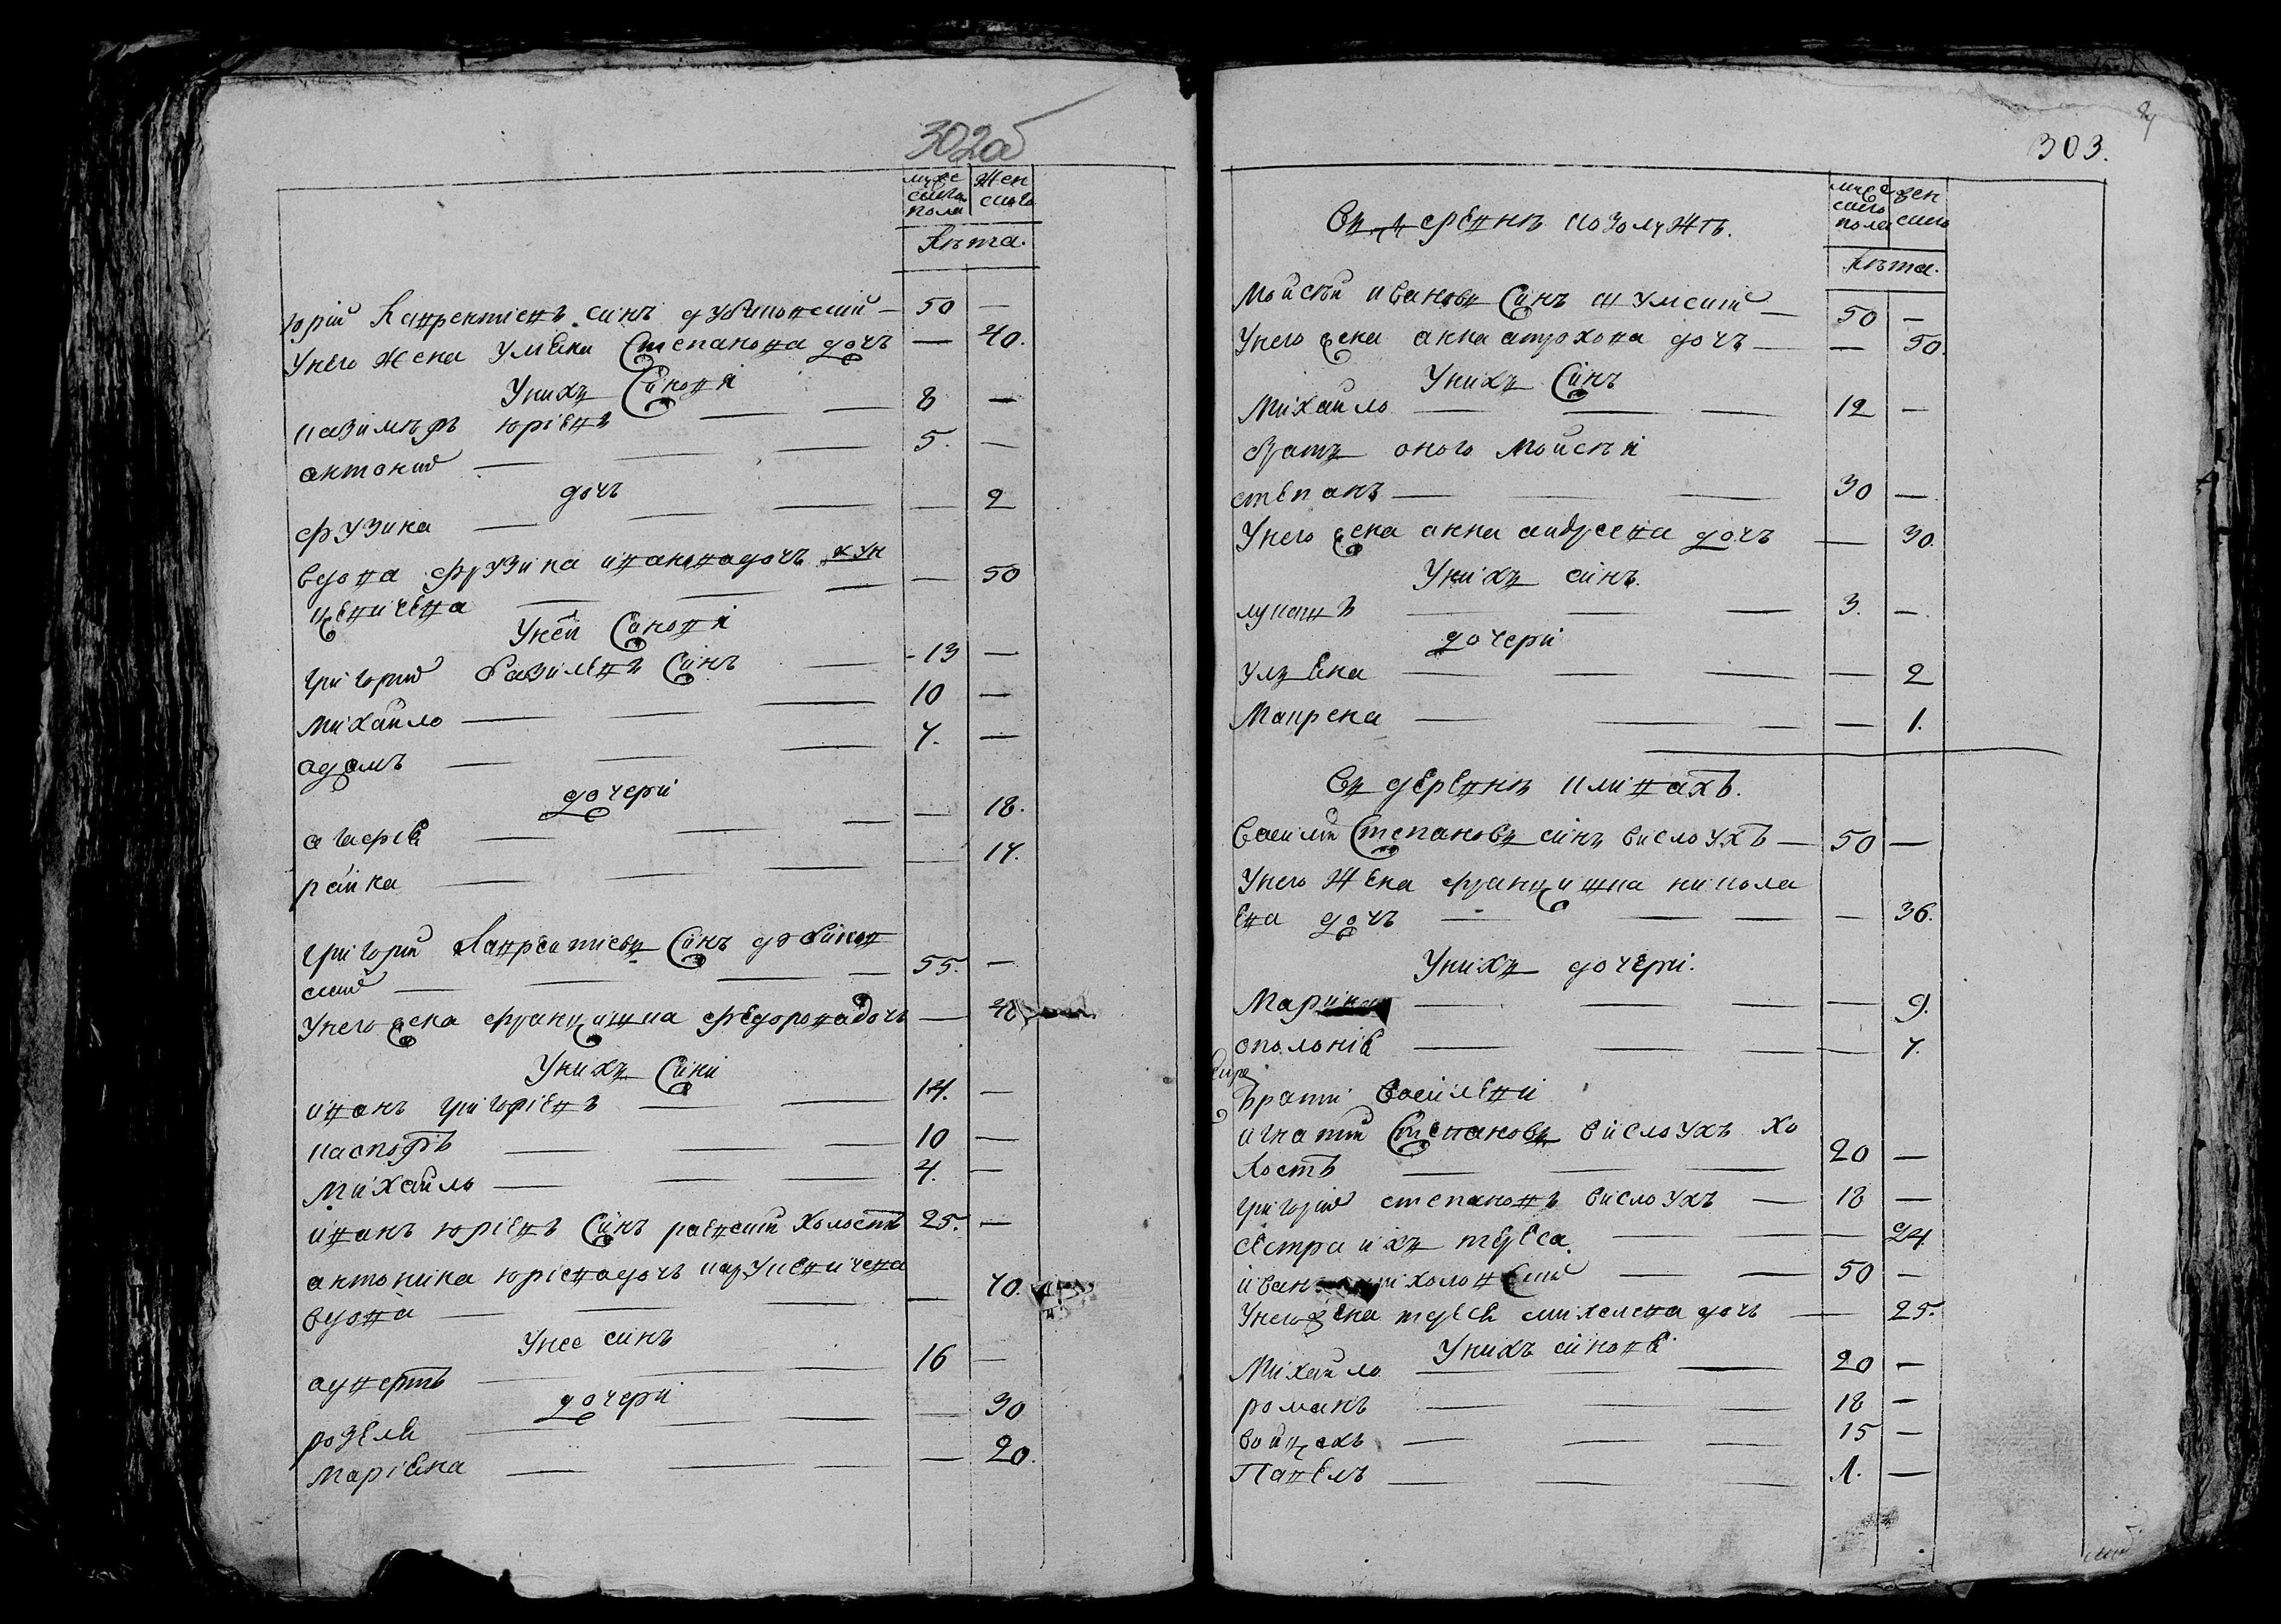 302об
мужескаго пола
женскаго
Лѣта.
Юрій Лаврентіевъ синъ дубиковскій — 50 —
У него жена Улѣяна Степанова дочъ — 40.
У нихъ Синовя
казимѣръ юріевъ 8 —
антоній 5. —
дочъ
фрузина — 2
вдова фрузина иванова дочъ — 50
У ней Синовя
григорій базилевъ Синъ 13 —
михайло 10 —
адамъ 7. —
дочери
агафія — 18.
райна — 14.
григорій Лаврентіевъ Синъ дубиков
скій 55. —
У него жена францишка федорова дочъ — 40
У нихъ Сини
иванъ григоріевъ 14. —
каспоръ 10 —
михайло 4. —
иванъ юріевъ Синъ раевскій холостъ 25. —
антонина юріева дочъ
вдова — 40.
У нее синъ
16 —
дочери
розеля — 30
маріяна — 20.
303.
Въ деревнѣ козолужѣ.
мужескаго пола
женскаго
Лѣта.
Мойсѣй ивановъ Синъ шумскій 50 —
У него жена анна дочъ — 50.
У нихъ Синъ
михайло 12 —
братъ оного Мойсѣя
степанъ 30 —
У него жена анна андреева дочъ — 30.
У нихъ синъ.
лукашъ 3. —
дочери
улѣяна — 2
Маврена — 1.
Въ деревнѣ кливахъ.
Василій Степановъ синъ вислоухъ — 50 —
У него жена францишка никола
ева дочъ — 36.
У нихъ дочери.
Марина — 9.
аполонія — 7.
Братя василеви
игнатій Степановъ вислоухъ хо
лостъ 20 —
григорій степановъ вислоухъ — 18 —
сестра ихъ тереса — 24
иван 50 —
У него жена тереса михалева дочъ — 25.
У нихъ синовя
Михайло 20 —
романъ 18 —
войцехъ 15 —
Павелъ 1. —